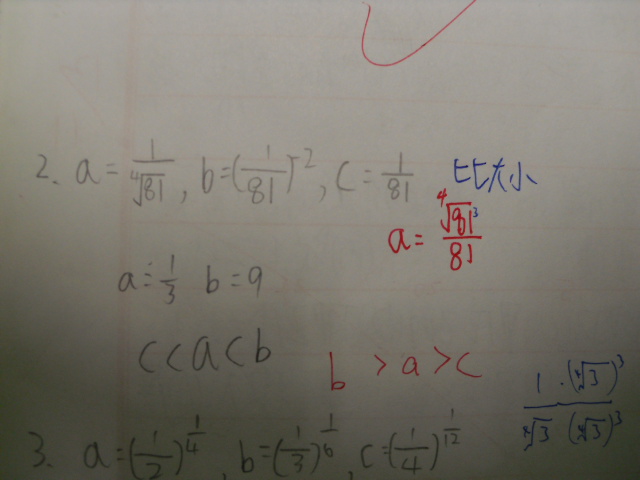 2. a = 1/⁴√81, b = (1/81)⁻², c = 1/81 比大小
a = ⁴√81³/81
a = 1/3 b = 9
c < a < b b > a > c
1·(⁴√3)³/⁴√3 (⁴√3)³
3. a = (1/2)^(1/4), b = (1/3)^(1/6), c = (1/4)^(1/12)